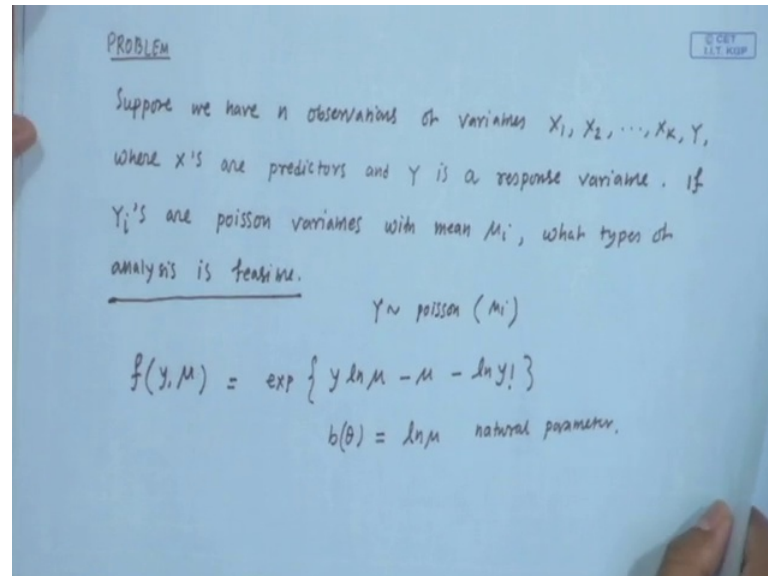 PROBLEM
© CET
I.I.T. KGP
Suppose we have n observations on variables X₁, X₂, ..., Xₖ, Y,
where X's are predictors and Y is a response variable. If
Yᵢ's are poisson variables with mean μᵢ, what types of
analysis is feasible.
Y ~ poisson (μᵢ)
f(y, μ) = exp { y ln μ - μ - ln y! }
b(θ) = ln μ natural parameter.